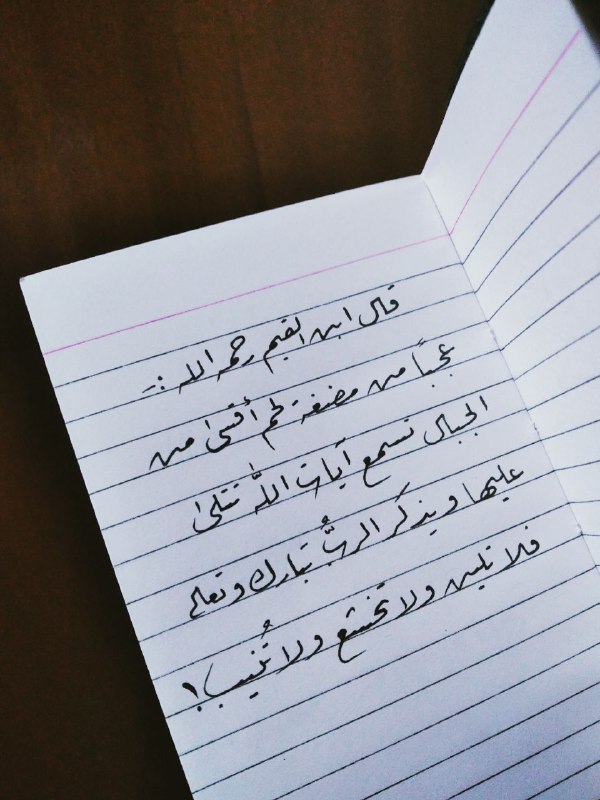 قال ابن القيم رحمه الله :-
عجباً من مضغة لحم أقسىٰ من
الجبال تسمع آيات اللّٰه تتلىٰ
عليها ويذكر الربُّ تبارك وتعالى
فلا تلين ولا تخشع ولا تُنيب!